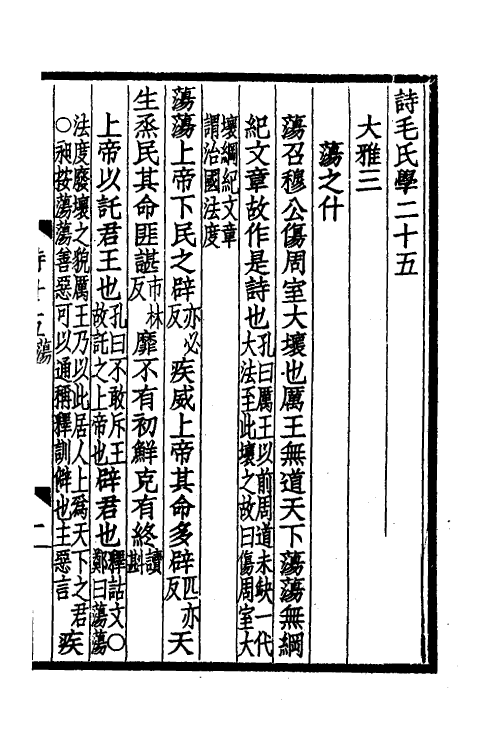 詩毛氏學二十五
大雅三
蕩之什
蕩召穆公傷周室大壞也厲王無道天下蕩蕩無綱
紀文章故作是詩也孔曰厲王以前周道未缺一代大法至此壞之故曰傷周室大
壞綱紀文章謂治國法度
蕩蕩上帝下民之辟亦必反疾威上帝其命多辟匹亦反天
生烝民其命匪諶市林反靡不有初鮮克有終讀斟
上帝以託君王也孔曰不敢斥王故託之上帝也辟君也釋詁文○鄭曰蕩蕩
法度廢壞之貌厲王乃以此居人上爲天下之君○昶按蕩蕩善惡可以通稱釋訓僻也主惡言疾
蕩 一